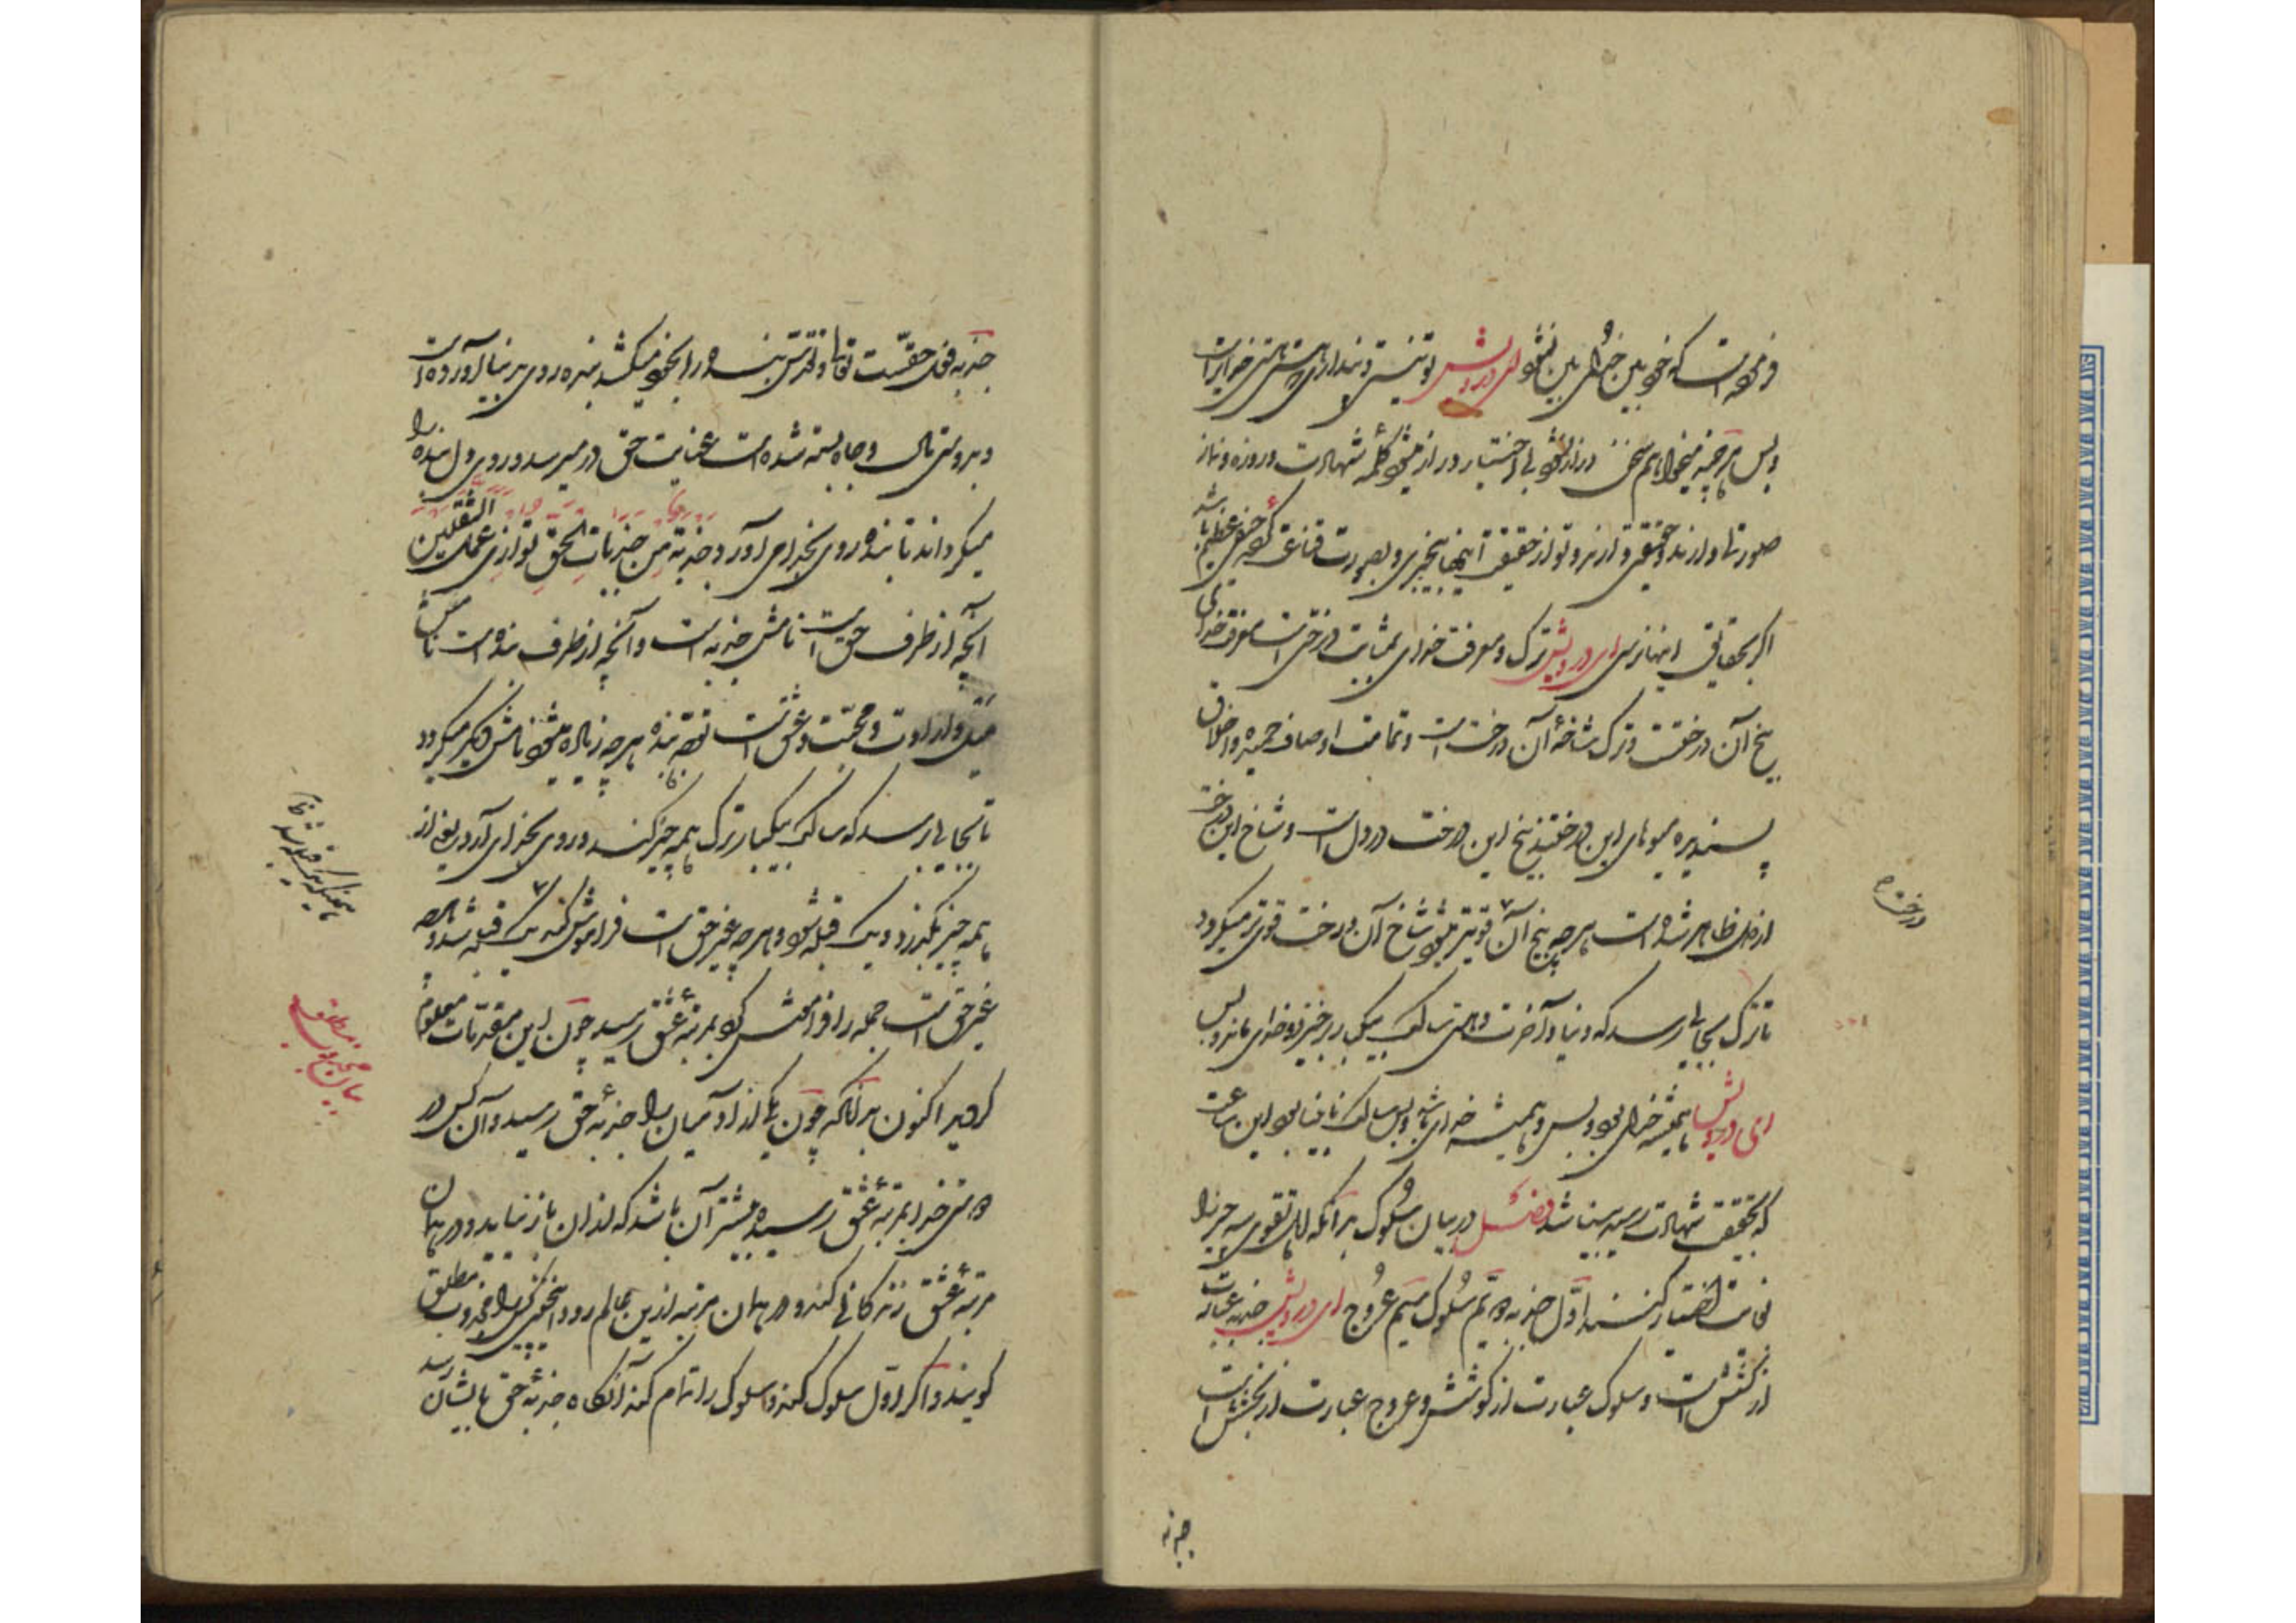 فرموده است که خودبین خدای بین نشود ای درویش تو نیستی و پنداری که هستی هستی خدایراست
و بس هرچه میخواهم سخن دراز نشود بی اختیار دراز میشود کلمه شهادت و روزه و نماز
صورتی دارند و حقیقتی دارند و تو از حقیقت اینها بیخبری و بصورت قناعت کرده خسرانی عظیم باشد
اگر بحقایق اینها نرسی ای درویش ترک و معرفت خدای بمثابت درختی است معرفت خدای
بیخ آن درختست و ترک شاخه آن درخت است و تمامت اوصاف حمیده و اخلاق
پسندیده میوهای این درختند بیخ این درخت در دل است و شاخ این درخت
از دل ظاهر شده است هرچه بیخ آن قویتر میشود شاخ آن درخت قوی تر میگردد
درخت
تا ترک بجایی رسد که دنیا و آخرت و هستی سالک بیکبار برخیزد و خدای ماند و بس
ای درویش همیشه خدای بود و بس و همیشه خدای باشد و بس سالک نابینا بود این ساعت
که بحقیقت شهادت رسید بینا شد فصل در بیان سلوک بدانکه اهل تقوی سه چیز را
غایت اعتبار کنند اول جذبه دوم سلوک سیم عروج ای درویش جذبه عبارت
از کشش است و سلوک عبارت از کوشش و عروج عبارت از بخشش است
جذبه
جذبه فعل حقست تعالی و تقدس بنده را بخود میکشد بنده روی بدنیا آورده است
و بدوستی مال و جاه بسته شده است عنایت حق در میرسد و روی دل بنده را
میگرداند تا بنده روی بخدای آورد و جذبة من جذبات الحق توازی عمل الثقلین
آنچه از طرف حق است نامش جذبه است و آنچه از طرف بنده است نامش
میل و ارادت و محبت و عشق است توجه بنده هرچه زیاده میشود نامش دیگر میگردد
تا بجایی رسد که سالک بیکبار ترک همه چیز کند و روی بخدای آرد یعنی از
همه چیز بگذرد و یک قبله شود و هرچه غیر حق است فراموش کند یک قبله شد و هرچه
غیر حق است جمله را فراموش کرد بمرتبه عشق رسید چون این مقدمات معلوم
بیان مجذوب مطلق
کردید اکنون بدانکه چون یکی از آدمیان را جذبه حق رسید و آن کس در
دوستی خدا بمرتبه عشق رسیده بیشتر آن باشد که از آن باز نیاید و در همان
مرتبه عشق زندگانی کند و در همان مرتبه ازین عالم رود اینچنین کس را مجذوب مطلق
گویند و اگر اول سلوک کند و سلوک را تمام کند آنگاه جذبه حق بایشان رسد